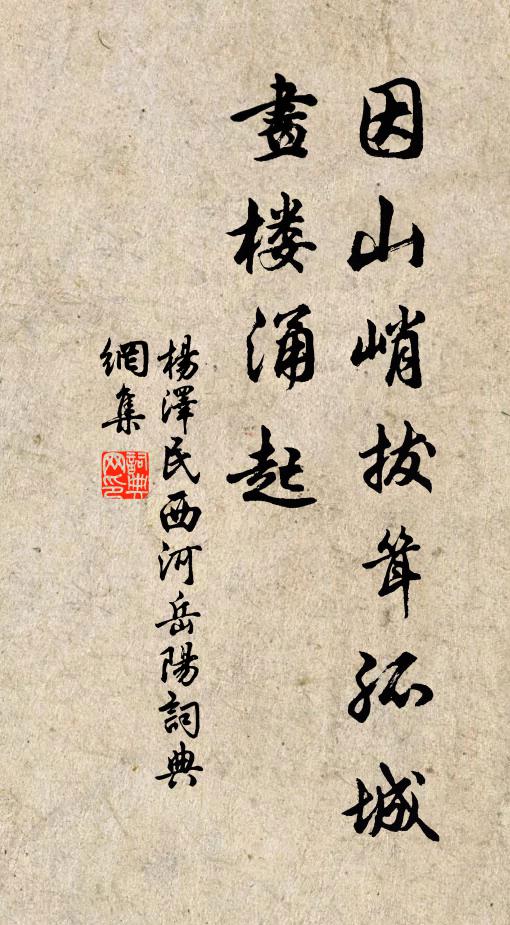 因山峭拔耸孤城
畫楼涌起
楊澤民西河岳陽詞典
網集
詞典
网印